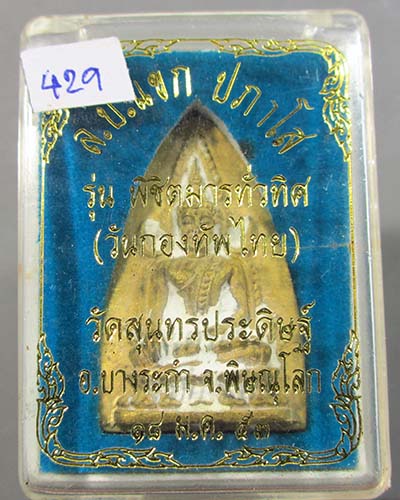 429
ล.ป.แขก ปภาโส
รุ่น พิชิตมารทั่วทิศ
(วันกองทัพไทย)
วัดสุนทรประดิษฐ์
อ.บางระกำ จ.พิษณุโลก
๑๘ ม.ค. ๕๓